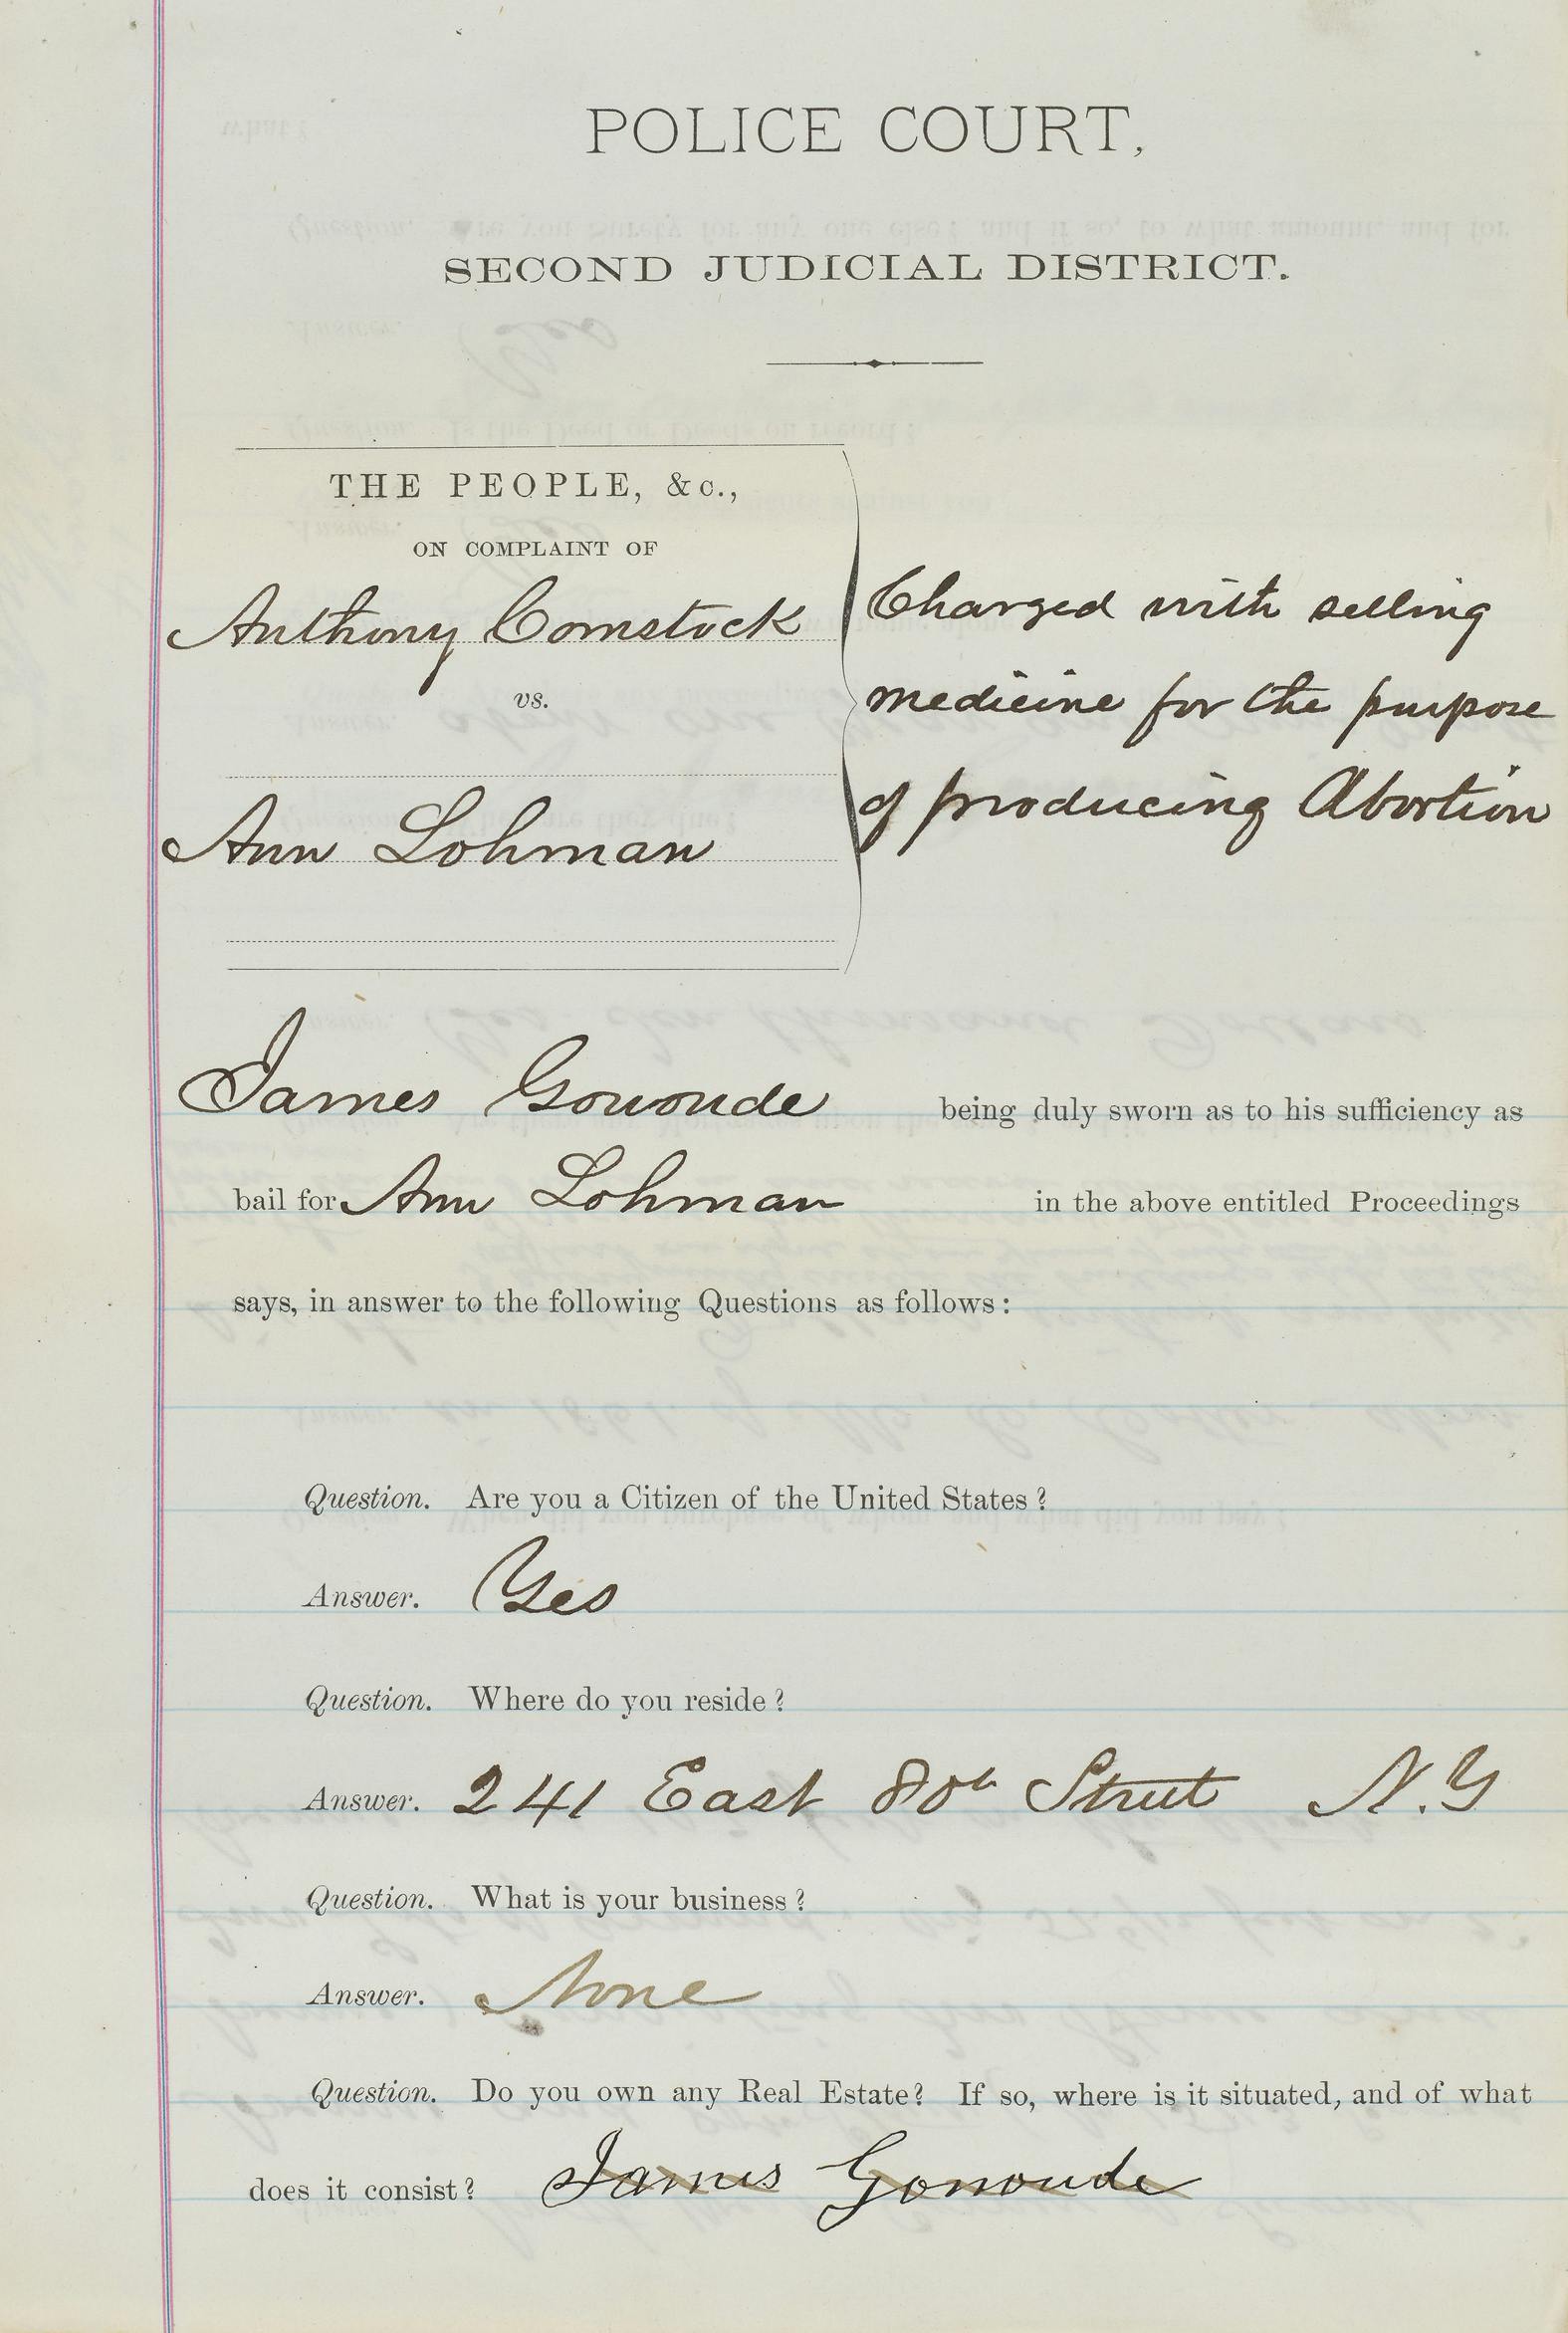 POLICE COURT,
SECOND JUDICIAL DISTRICT.
THE PEOPLE, &c.,
ON COMPLAINT OF
Anthony Comstock
vs.
Ann Lohman
Charged with selling
medicine for the purpose
of producing Abortion
James Gonoude being duly sworn as to his sufficiency as
bail for Ann Lohman in the above entitled Proceedings
says, in answer to the following Questions as follows:
Question. Are you a Citizen of the United States?
Answer. Yes
Question. Where do you reside?
Answer. 241 East 80th Street N.Y
Question. What is your business?
Answer. None
Question. Do you own any Real Estate? If so, where is it situated, and of what
does it consist? James Gonoude